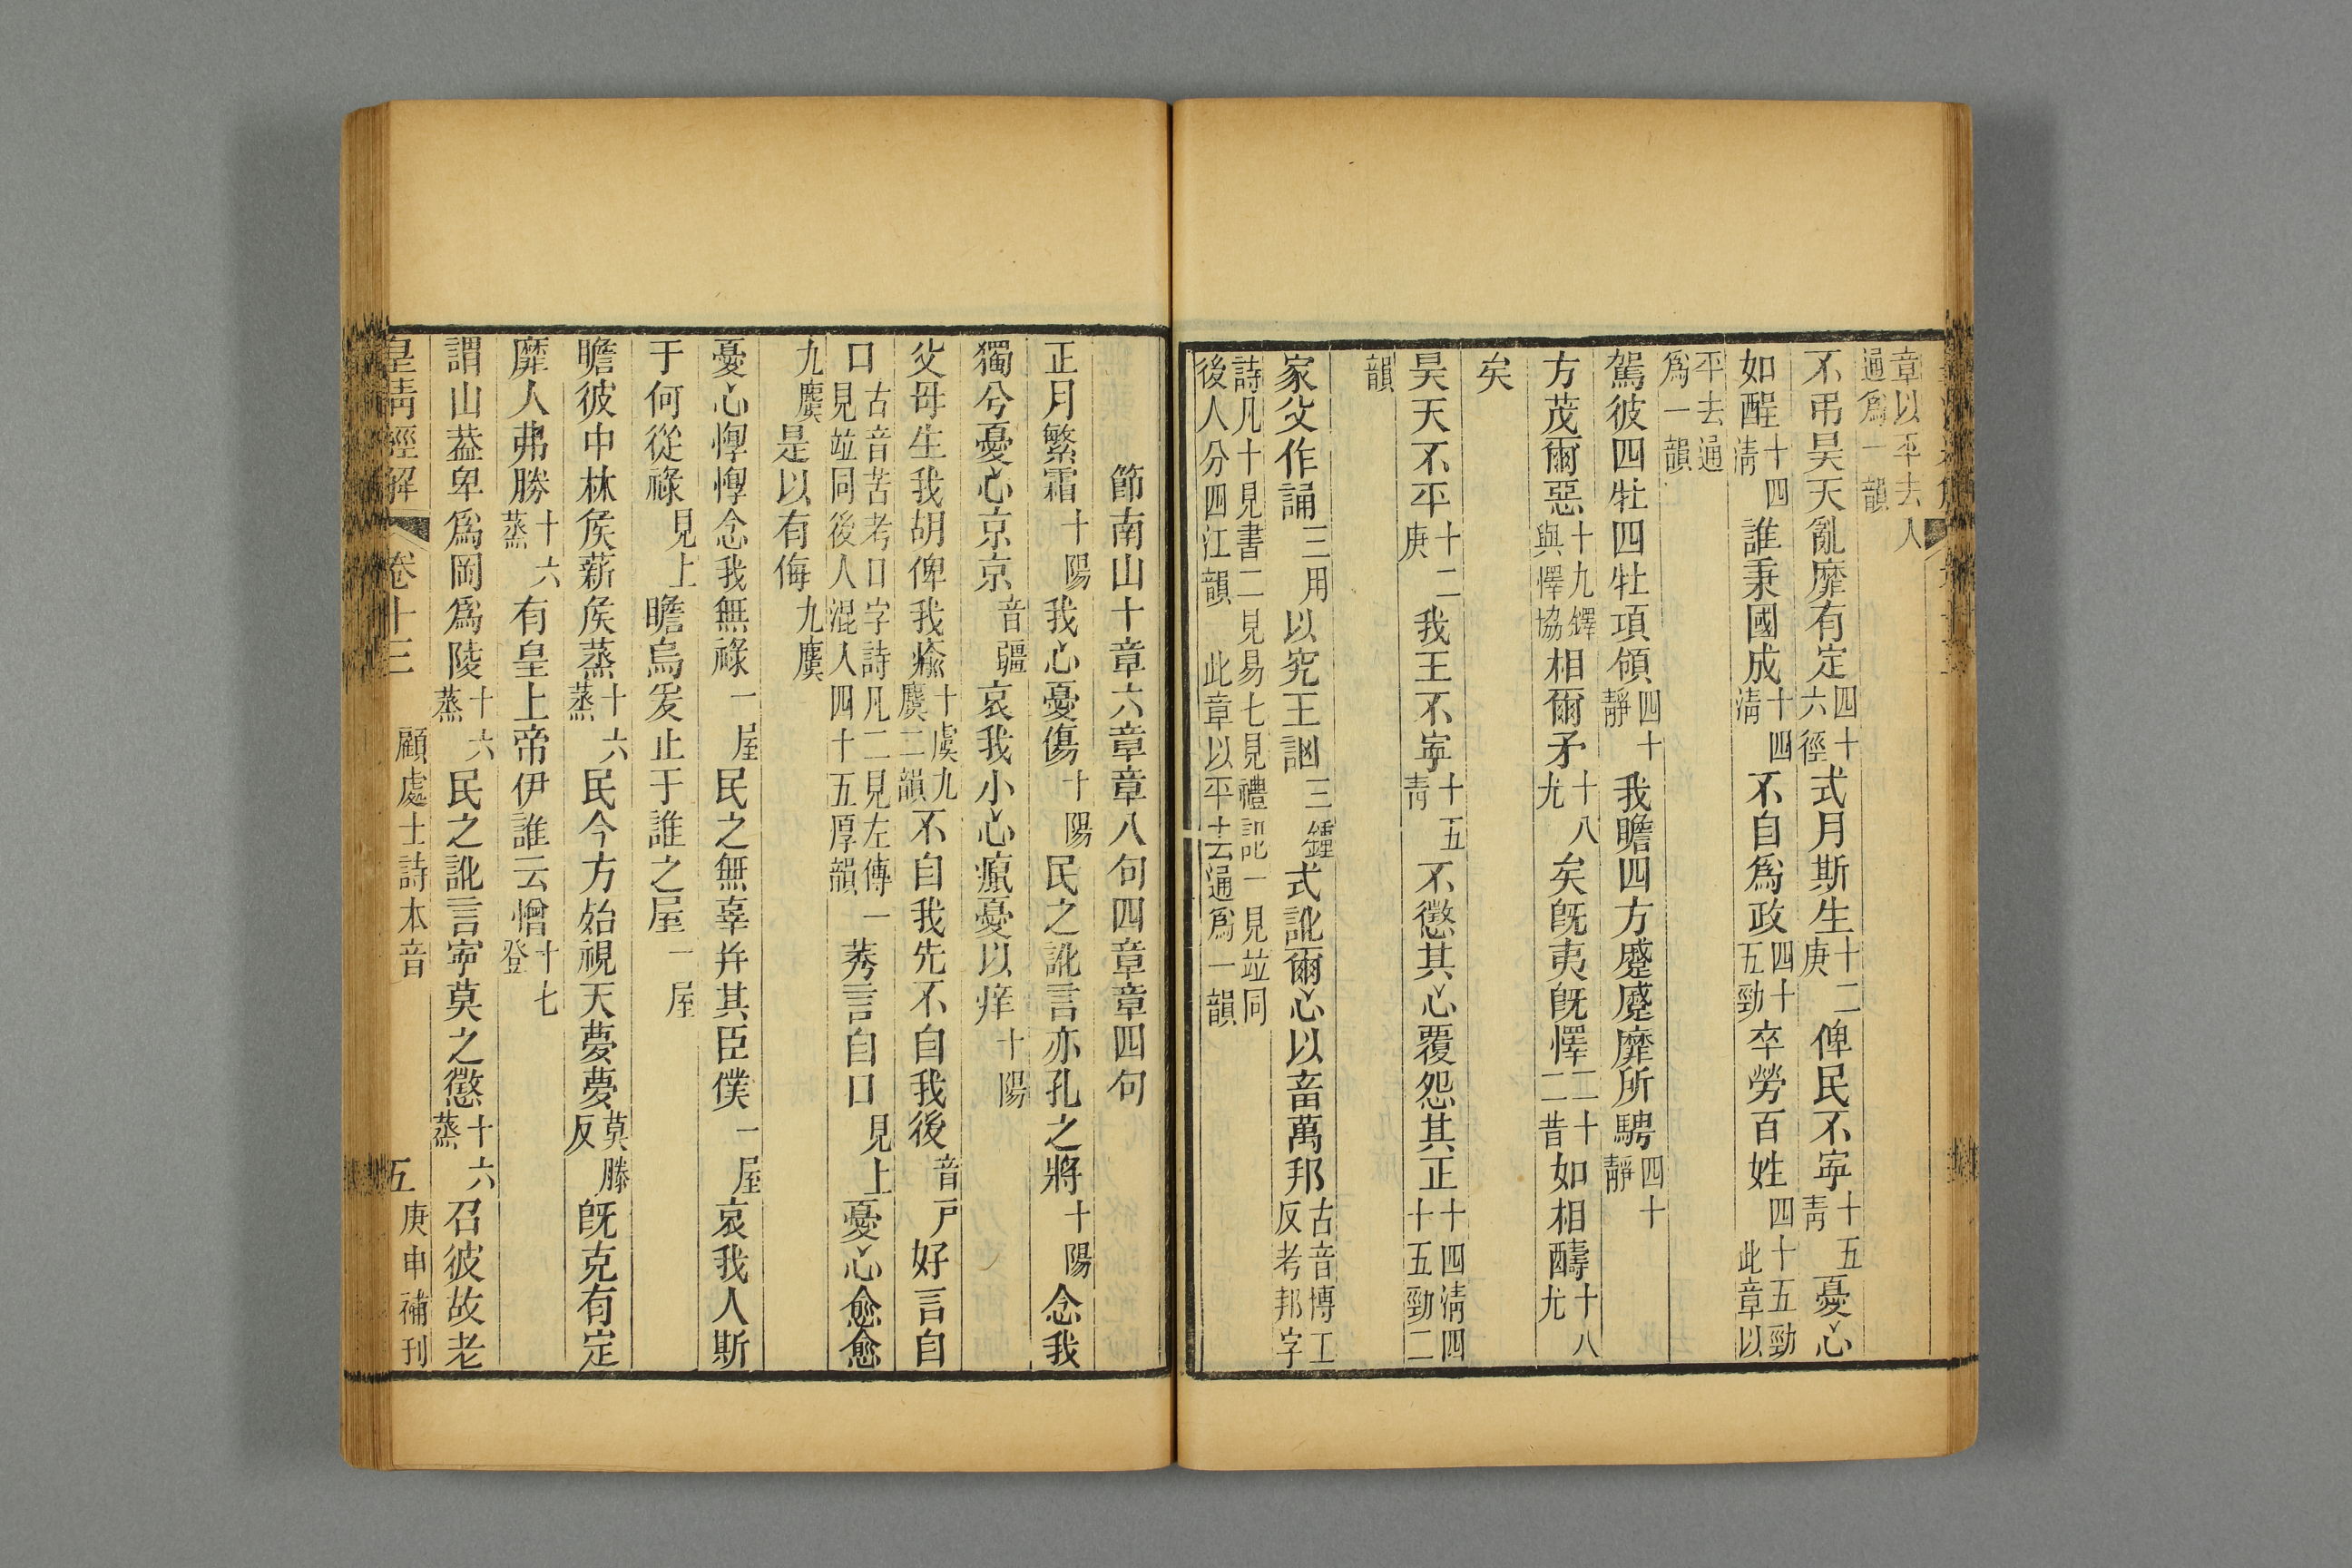 章以平去人通爲一韻
不弔昊天亂靡有定四十六徑式月斯生十二庚俾民不寧十五青憂心
如酲十四清誰秉國成十四清不自爲政四十五勁卒勞百姓四十五勁此章以
平去通爲一韻
駕彼四牡四牡項領四十靜我瞻四方蹙蹙靡所騁四十靜
方茂爾惡十九鐸與懌協相爾矛十八尤矣旣夷旣懌二十二昔如相醻十八尤
矣
昊天不平十二庚我王不寧十五青不懲其心覆怨其正十四清四十五勁二
韻
家父作誦三用以究王訩三鍾式訛爾心以畜萬邦古音博工反考邦字
詩凡十見書二見易七見禮記一見竝同後人分四江韻 此章以平去通爲一韻
節南山十章六章章八句四章章四句
正月繁霜十陽我心憂傷十陽民之訛言亦孔之將十陽念我
獨兮憂心京京音疆哀我小心癙憂以痒十陽
父母生我胡俾我瘉十虞九麌二韻不自我先不自我後音戸好言自
口古音苦考口字詩凡二見左傳一見竝同後人混入四十五厚韻莠言自口見上憂心愈愈
九麌是以有侮九麌
憂心惸惸念我無祿一屋民之無辜幷其臣僕一屋哀我人斯
于何從祿見上瞻烏爰止于誰之屋一屋
瞻彼中林矦薪矦蒸十六蒸民今方殆視天夢夢莫滕反旣克有定
靡人弗勝十六蒸有皇上帝伊誰云憎十七登
謂山葢卑爲岡爲陵十六蒸民之訛言寧莫之懲十六蒸召彼故老
皇淸經解 卷十三 顧處士詩本音 五 庚申補刊